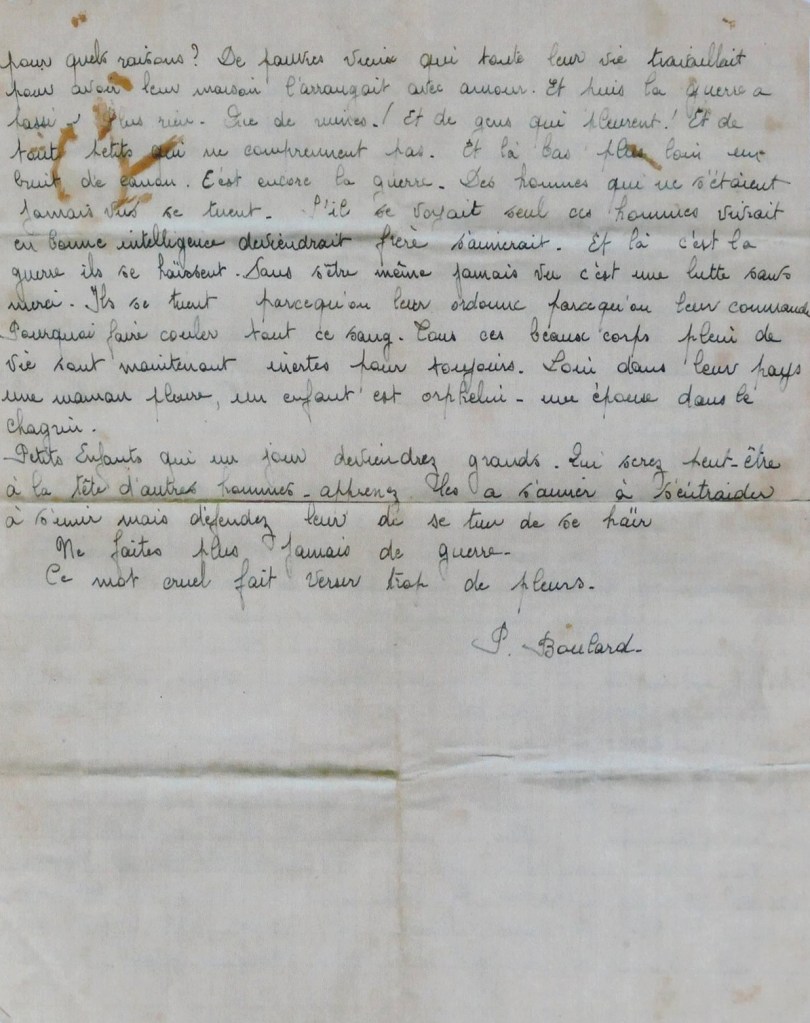 pour quels raisons? De pauvres vieux qui toute leur vie travaillait
pour avoir leur maison l'arrangait avec amour. Et puis la guerre a
passé - Plus rien. Que de ruines.! Et de gens qui pleurent! Et de
tout petits qui ne comprennent pas. Et là bas plus loin un
bruit de canon. C'est encore la guerre. Des hommes qui ne s'étaient
jamais vus se tuent. S'il se voyait seul ces hommes vivrait
en bonne intelligence deviendrait frère s'aimerait. Et là c'est la
guerre ils se haïssent. Sans s'être même jamais vu c'est une lutte sans
merci. Ils se tuent parcequ'on leur ordonne parcequ'on leur commande
Pourquoi faire couler tout ce sang. Tous ces beaux corps plein de
vie sont maintenant inertes pour toujours. Loin dans leur pays
une maman pleure, un enfant est orphelin - une épouse dans le
chagrin.
Petits Enfants qui un jour deviendrez grands. Qui serez peut-être
à la tête d'autres hommes - apprenez les a s'aimer à s'entraider
à s'unir mais défendez leur de se tuer de se haïr
Ne faites plus jamais de guerre -
Ce mot cruel fait verser trop de pleurs -
P. Boulard -